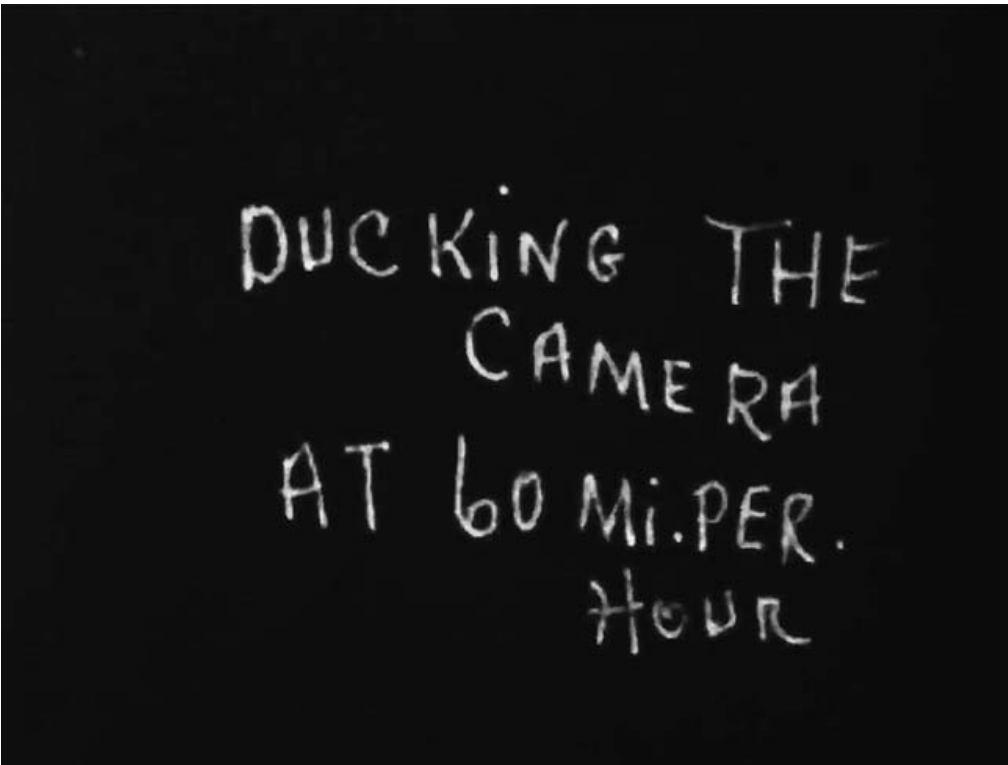 DUCKiNG THE
CAMERA
AT 60 Mi.PER.
HOUR